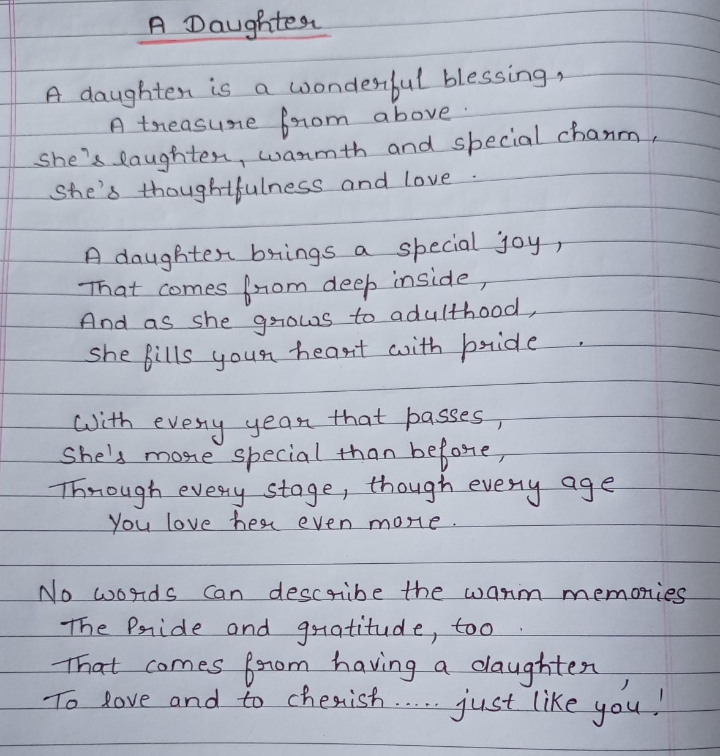 A Daughter
A daughter is a wonderful blessing,
A treasure from above.
She's laughter, warmth and special charm,
She's thoughtfulness and love.
A daughter brings a special joy,
That comes from deep inside,
And as she grows to adulthood,
She fills your heart with pride.
With every year that passes,
She's more special than before,
Through every stage, though every age
You love her even more.
No words can describe the warm memories
The Pride and gratitude, too.
That comes from having a daughter,
To love and to cherish..... just like you!